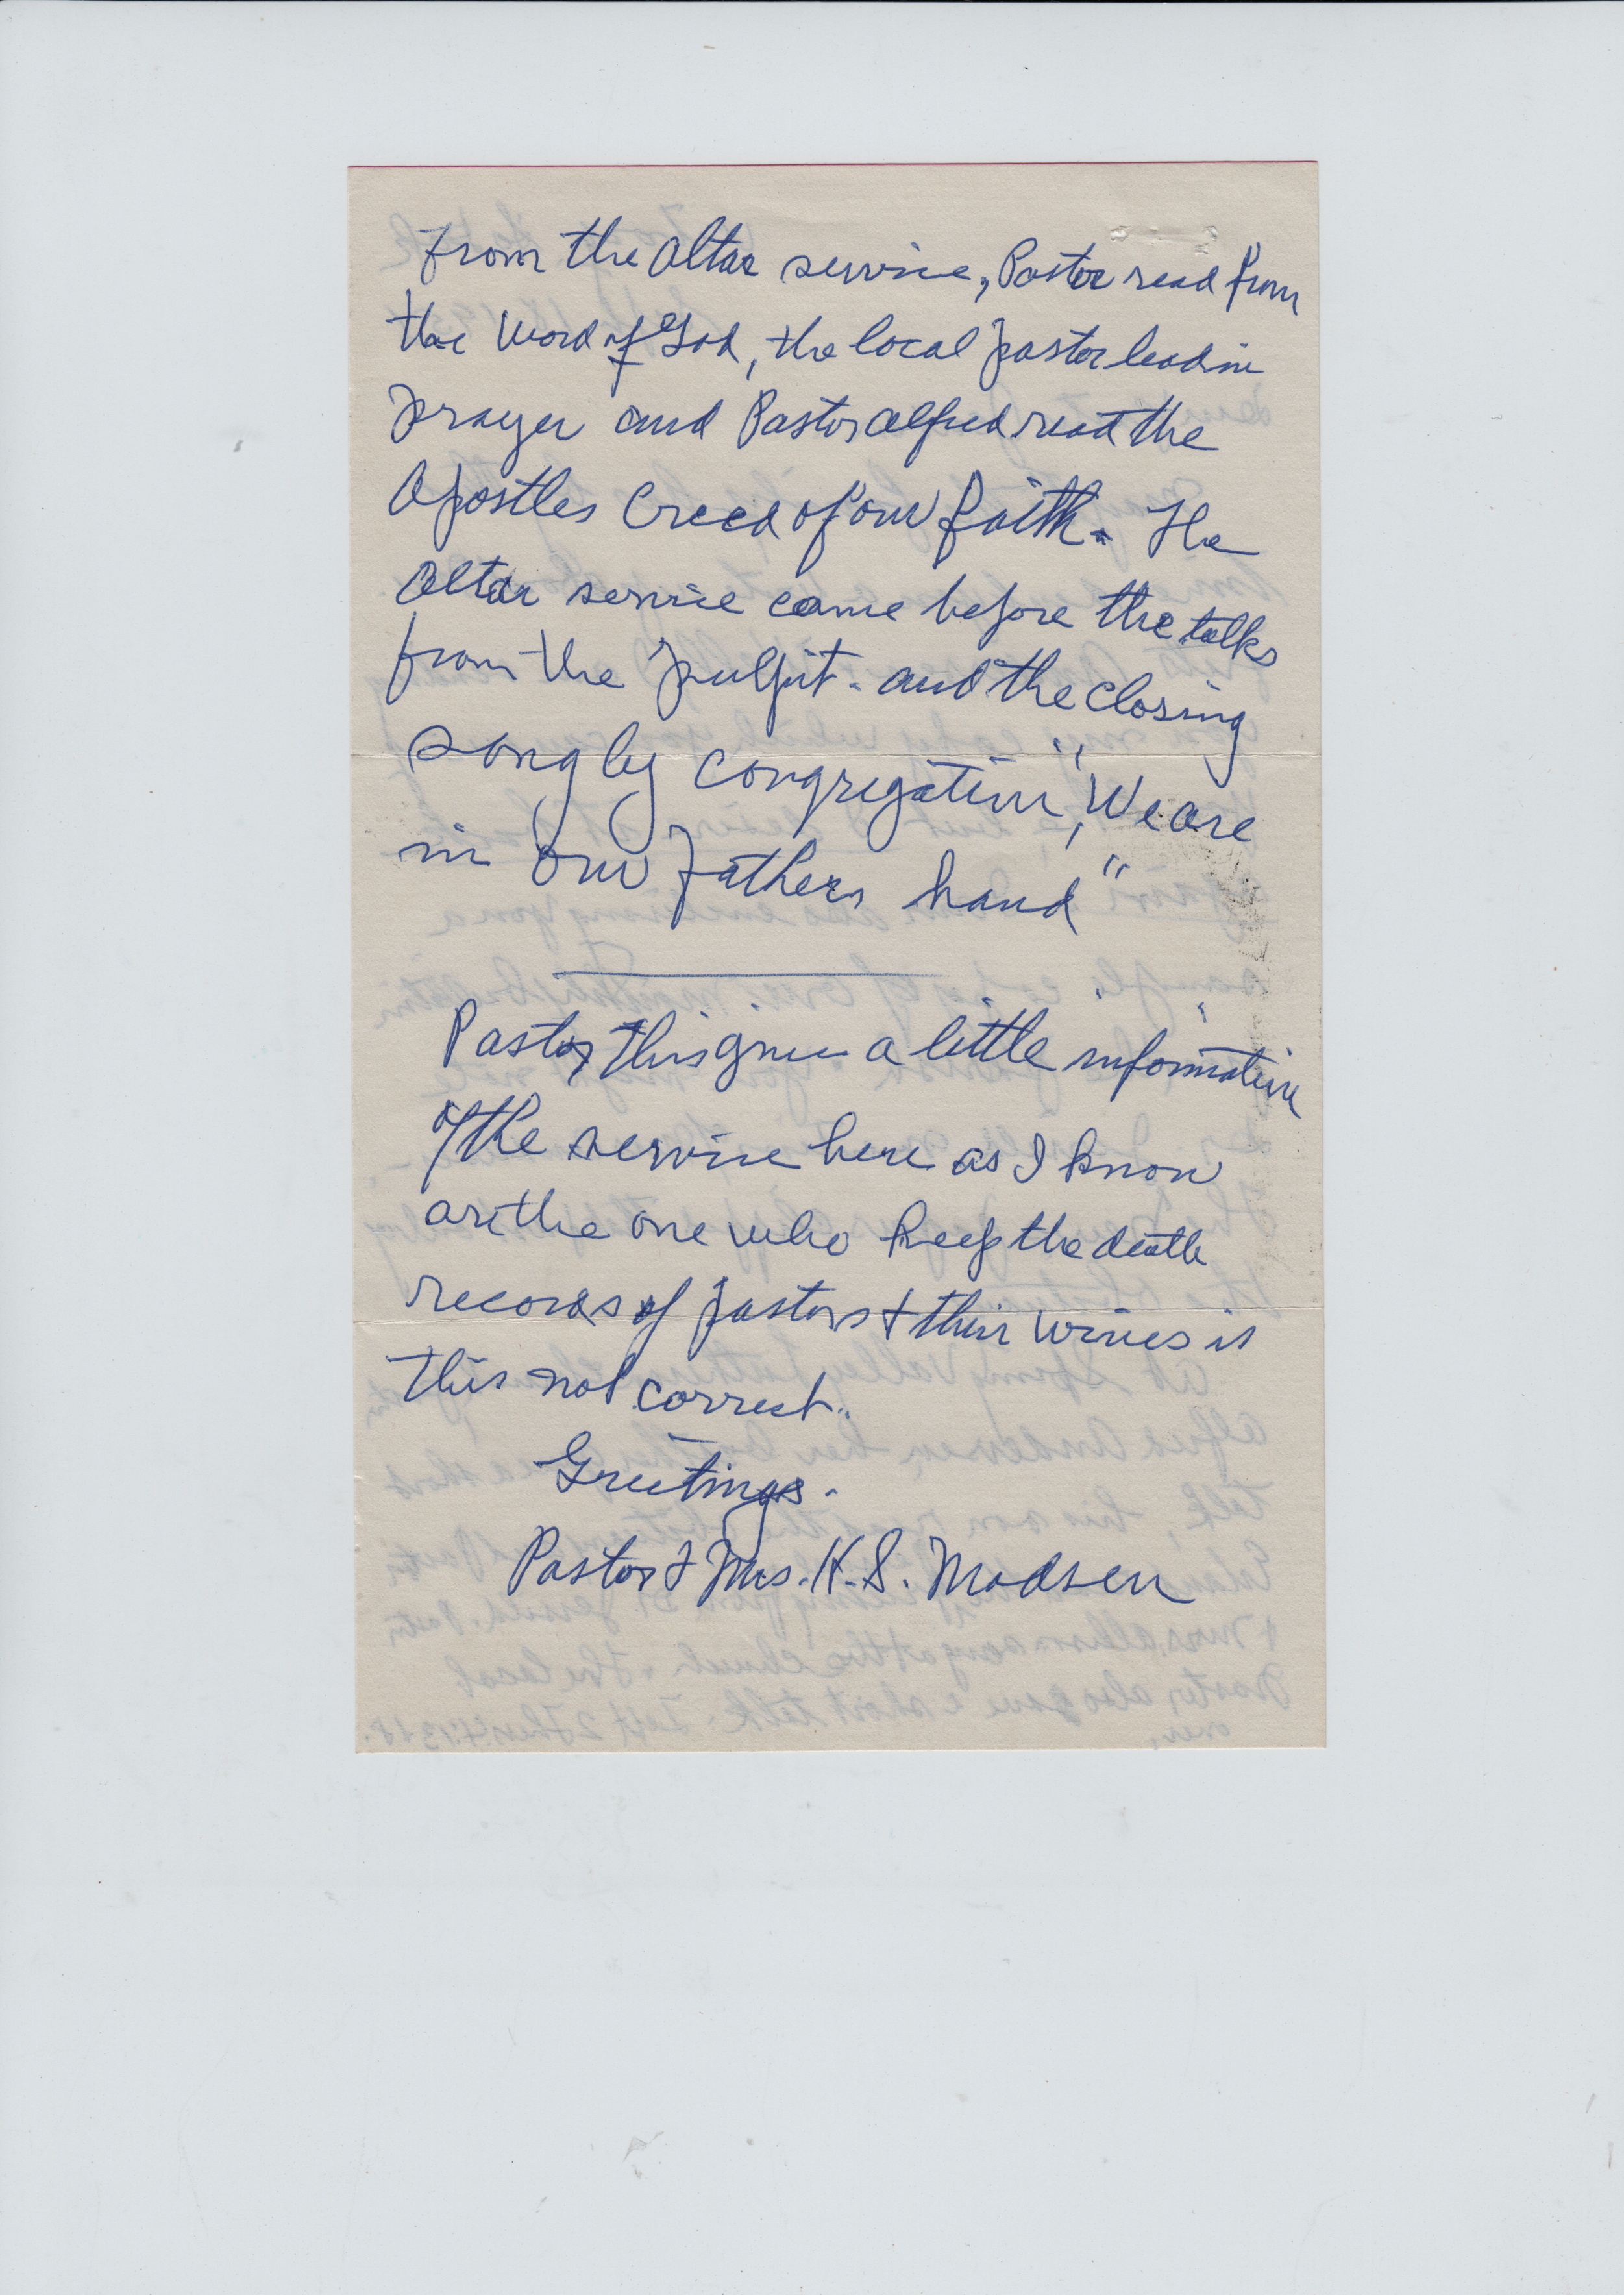 From the Altar service, Pastor read from
the Word of God, the local Pastor lead in
Prayer and Pastor Alfred read the
Apostles Creed of our faith. The
Altar service came before the talks
from the pulpit. and the closing
song by congregation, "We are
in our Fathers hand"
Pastor this give a little information
of the service here as I know
are the one who keep the death
records of pastors & their wives is
this not correct..
Greetings.
Pastor & Mrs. K. S. Madsen